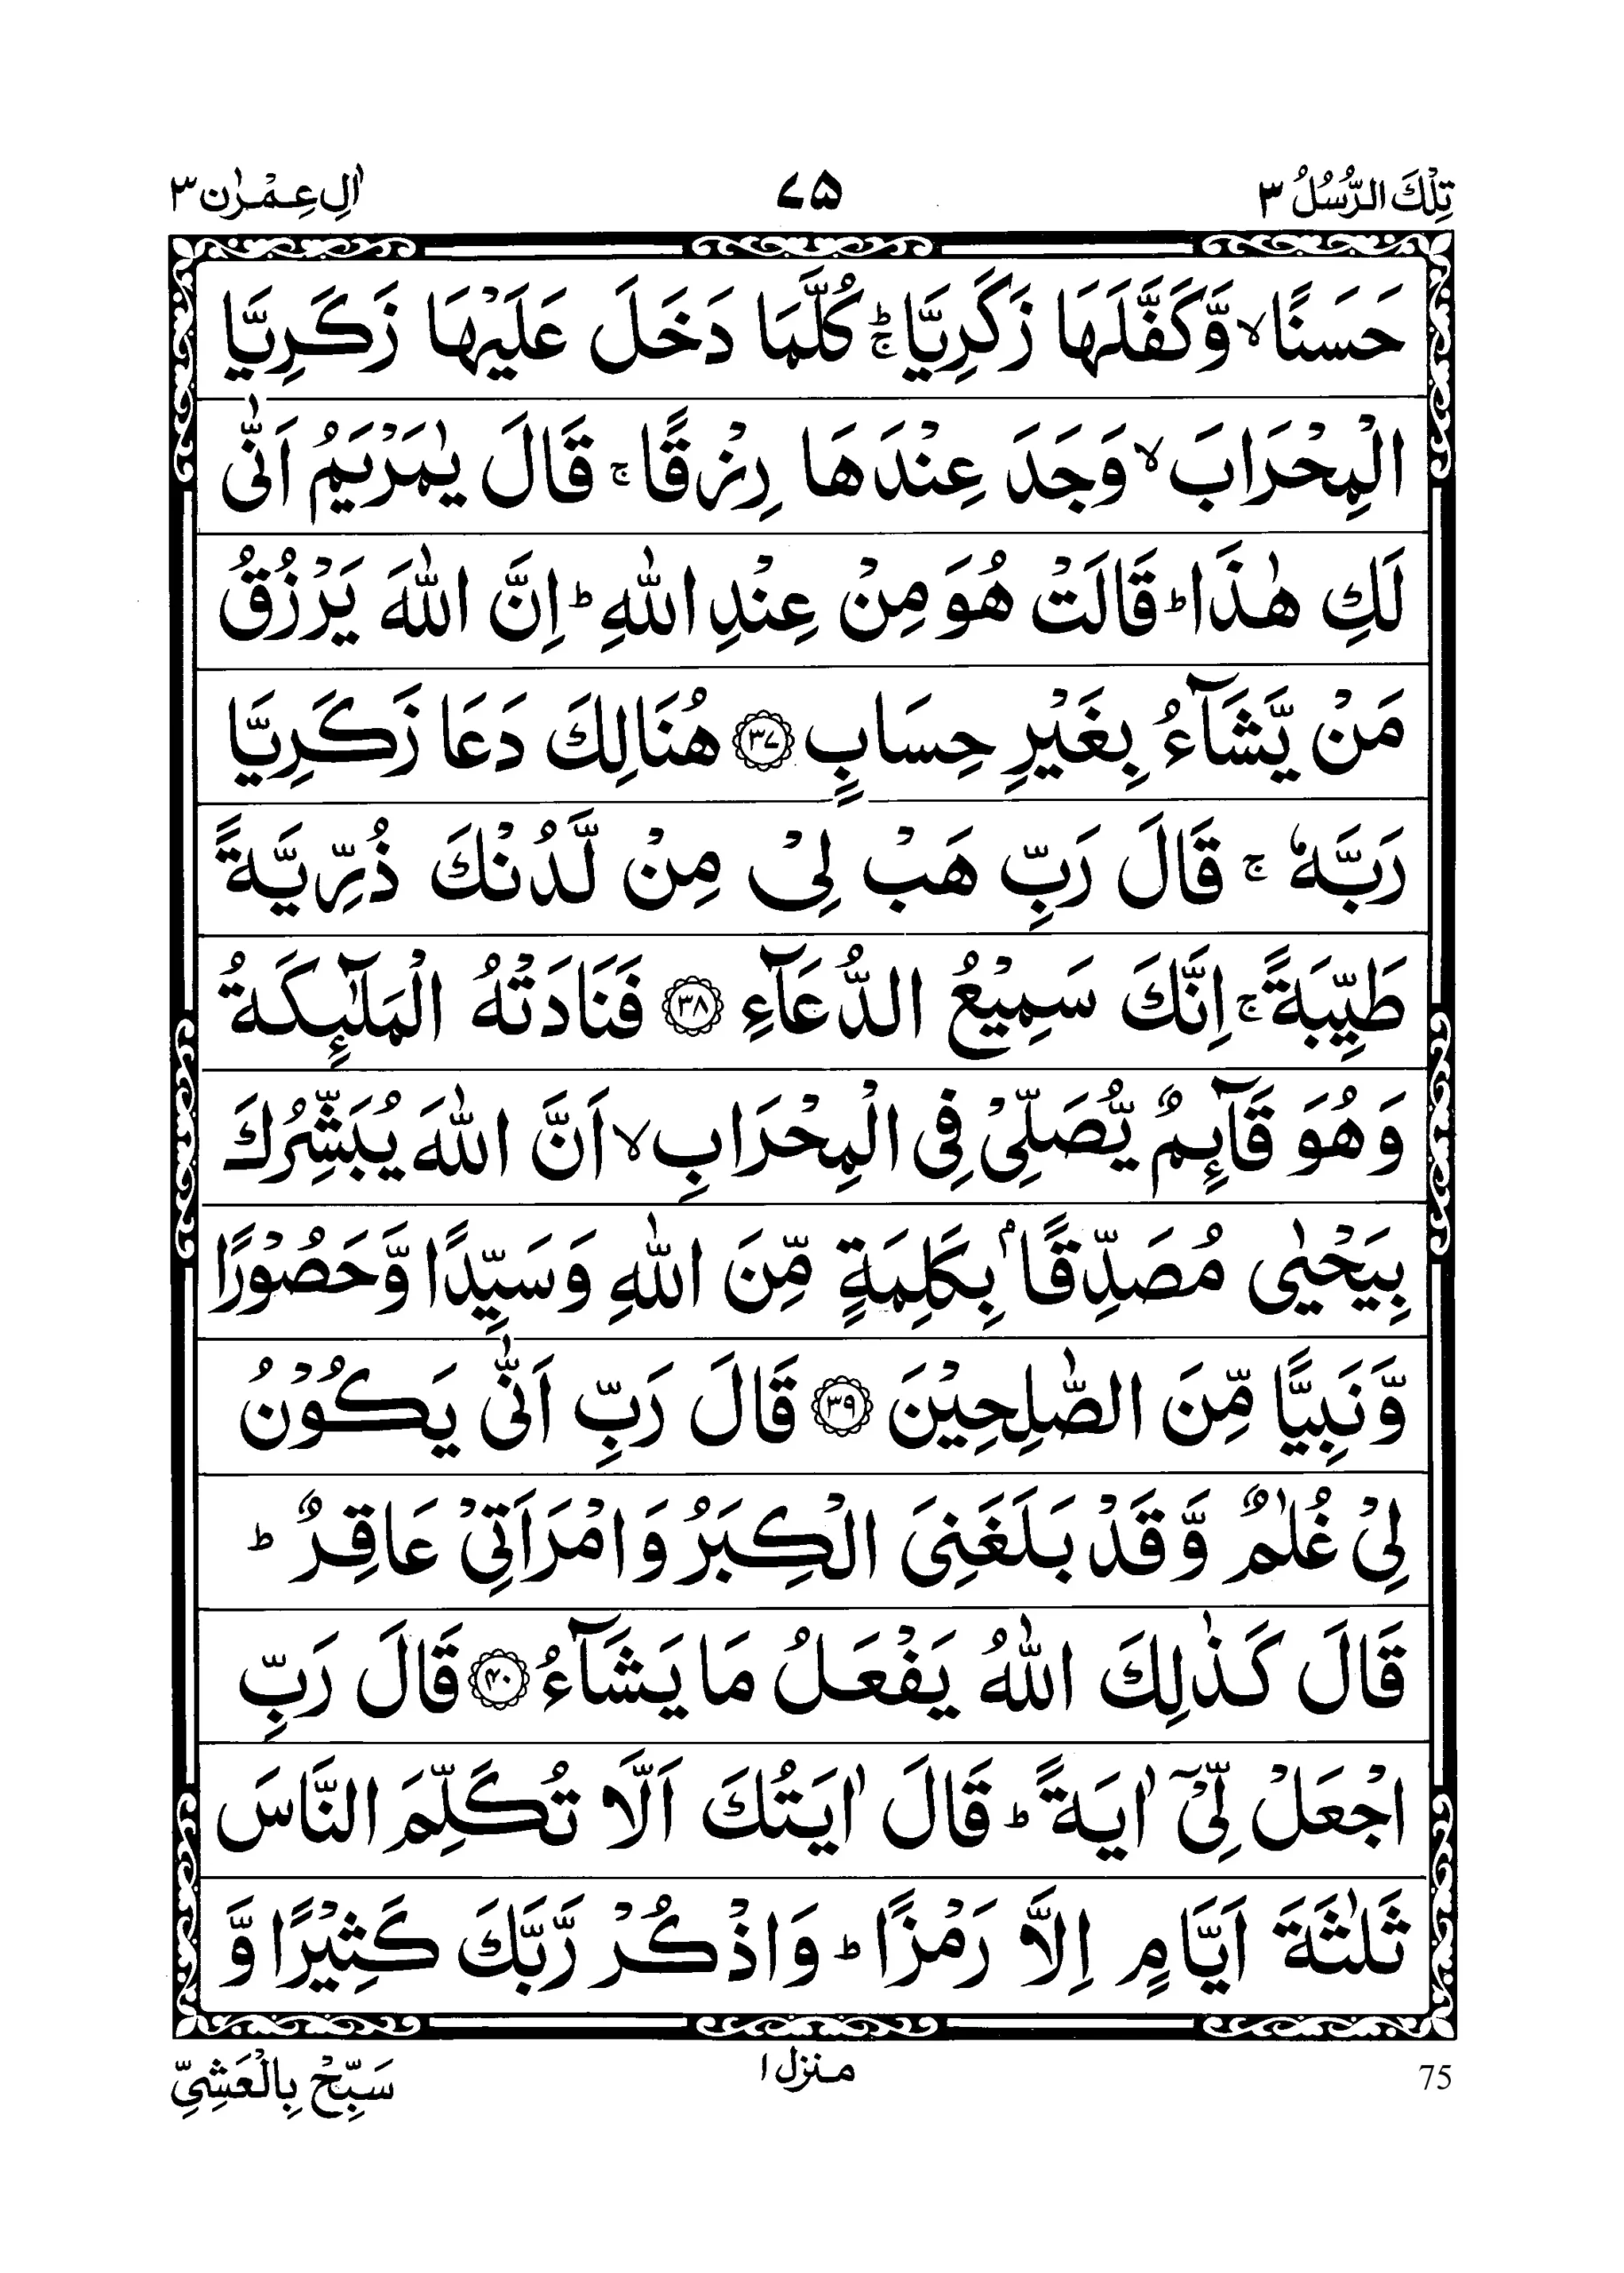 تِلْكَ الرُّسُلُ ٣ ٧٥ اٰلِ عِمْرٰن ٣
حَسَنًا ۙ وَّكَفَّلَهَا زَكَرِيَّا ؕۚ كُلَّمَا دَخَلَ عَلَيْهَا زَكَرِيَّا
الْمِحْرَابَ ۙ وَجَدَ عِنْدَهَا رِزْقًا ۚ قَالَ يٰمَرْيَمُ اَنّٰى
لَكِ هٰذَا ؕ قَالَتْ هُوَ مِنْ عِنْدِ اللّٰهِ ؕ اِنَّ اللّٰهَ يَرْزُقُ
مَنْ يَّشَآءُ بِغَيْرِ حِسَابٍ ﴿٣٧﴾ هُنَالِكَ دَعَا زَكَرِيَّا
رَبَّهٗ ۚ قَالَ رَبِّ هَبْ لِىْ مِنْ لَّدُنْكَ ذُرِّيَّةً
طَيِّبَةً ۚ اِنَّكَ سَمِيْعُ الدُّعَآءِ ﴿٣٨﴾ فَنَادَتْهُ الْمَلٰٓئِكَةُ
وَهُوَ قَآئِمٌ يُّصَلِّىْ فِى الْمِحْرَابِ ۙ اَنَّ اللّٰهَ يُبَشِّرُكَ
بِيَحْيٰى مُصَدِّقًاۢ بِكَلِمَةٍ مِّنَ اللّٰهِ وَسَيِّدًا وَّحَصُوْرًا
وَّنَبِيًّا مِّنَ الصّٰلِحِيْنَ ﴿٣٩﴾ قَالَ رَبِّ اَنّٰى يَكُوْنُ
لِىْ غُلٰمٌ وَّقَدْ بَلَغَنِىَ الْكِبَرُ وَامْرَاَتِىْ عَاقِرٌ ؕ
قَالَ كَذٰلِكَ اللّٰهُ يَفْعَلُ مَا يَشَآءُ ﴿٤٠﴾ قَالَ رَبِّ
اجْعَلْ لِّىْٓ اٰيَةً ؕ قَالَ اٰيَتُكَ اَلَّا تُكَلِّمَ النَّاسَ
ثَلٰثَةَ اَيَّامٍ اِلَّا رَمْزًا ؕ وَاذْكُرْ رَّبَّكَ كَثِيْرًا وَّ
75 منزل ١ سَبِّحْ بِالْعَشِىِّ